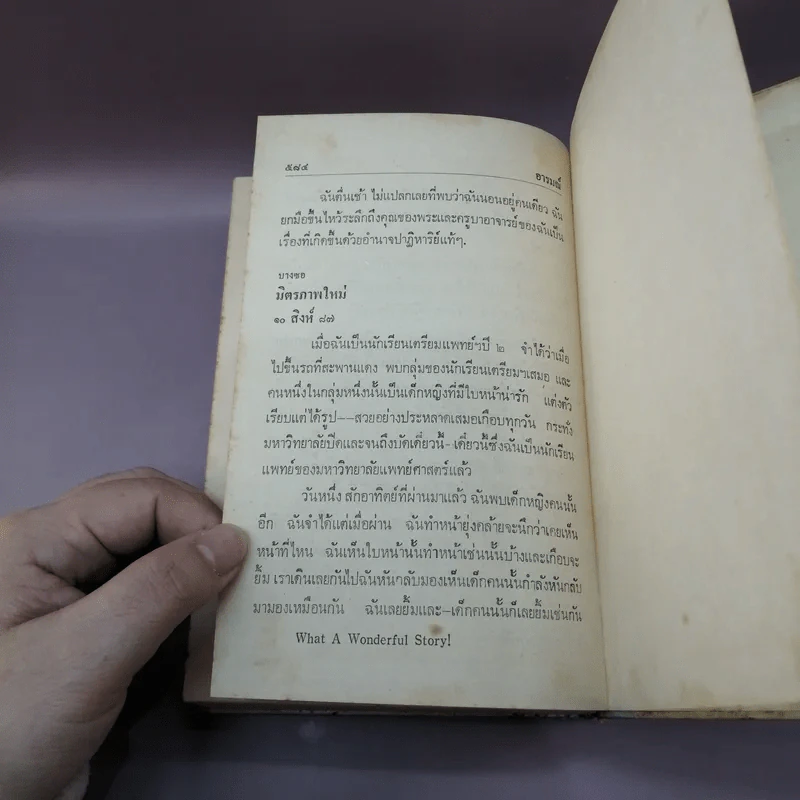 ๕๘๔
อารมณ์
ฉันตื่นเช้า ไม่แปลกเลยที่พบว่าฉันนอนอยู่คนเดียว ฉัน
ยกมือขึ้นไหว้ระลึกถึงคุณของพระและครูบาอาจารย์ของฉันเป็น
เรื่องที่เกิดขึ้นด้วยอำนาจปาฏิหาริย์แท้ๆ.
บางซอ
มิตรภาพใหม่
๑๐ สิงห์ ๘๗
เมื่อฉันเป็นนักเรียนเตรียมแพทย์ฯปี ๒ จำได้ว่าเมื่อ
ไปขึ้นรถที่สะพานแดง พบกลุ่มของนักเรียนเตรียมฯเสมอ และ
คนหนึ่งในกลุ่มหนึ่งนั้นเป็นเด็กหญิงที่มีใบหน้าน่ารัก แต่งตัว
เรียบแต่ได้รูป--สวยอย่างประหลาดเสมอเกือบทุกวัน กระทั่ง
มหาวิทยาลัยปิดและจนถึงบัดเดี๋ยวนี้-เดี๋ยวนี้ซึ่งฉันเป็นนักเรียน
แพทย์ของมหาวิทยาลัยแพทย์ศาสตร์แล้ว
วันหนึ่ง สักอาทิตย์ที่ผ่านมาแล้ว ฉันพบเด็กหญิงคนนั้น
อีก ฉันจำได้แต่เมื่อผ่าน ฉันทำหน้ายุ่งคล้ายจะนึกว่าเคยเห็น
หน้าที่ไหน ฉันเห็นใบหน้านั้นทำหน้าเช่นนั้นบ้างและเกือบจะ
ยิ้ม เราเดินเลยกันไปฉันหันกลับมองเห็นเด็กคนนั้นกำลังหันกลับ
มามองเหมือนกัน ฉันเลยยิ้มและ-เด็กคนนั้นก็เลยยิ้มเช่นกัน
What A Wonderful Story!